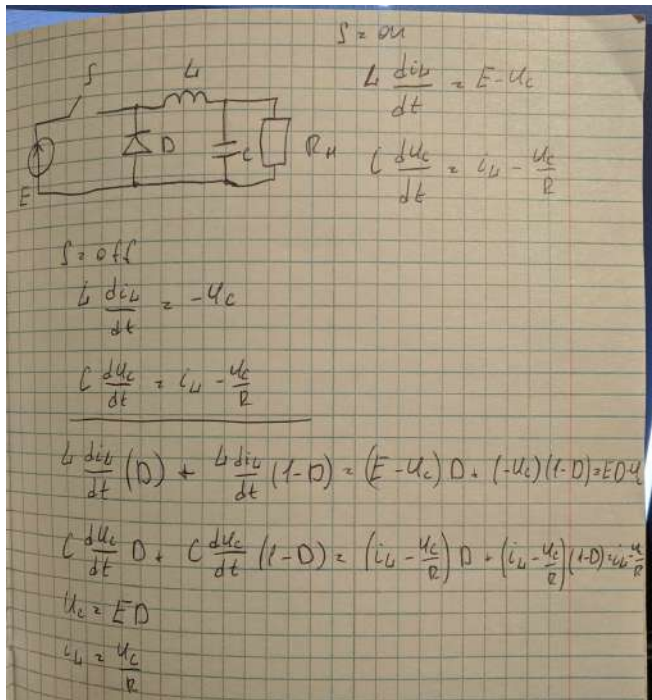 S = on
L di_L/dt = E - U_c
C dU_c/dt = i_L - U_c/R
S
L
D
C
R_H
E
S = off
L di_L/dt = -U_c
C dU_c/dt = i_L - U_c/R
L di_L/dt (D) + L di_L/dt (1-D) = (E - U_c) D + (-U_c)(1-D) = ED-U
C dU_c/dt D + C dU_c/dt (1-D) = (i_L - U_c/R) D + (i_L - U_c/R)(1-D) = i_L-U/R
U_c = ED
i_L = U_c/R